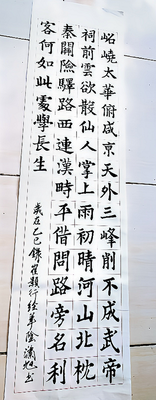 岧嶢太華俯咸京天外三峰削不成武帝
祠前雲欲散仙人掌上雨初晴河山北枕
秦關險驛路西連漢時平借問路旁名利
客何如此處學長生
歲在乙巳錄崔顥行經華陰